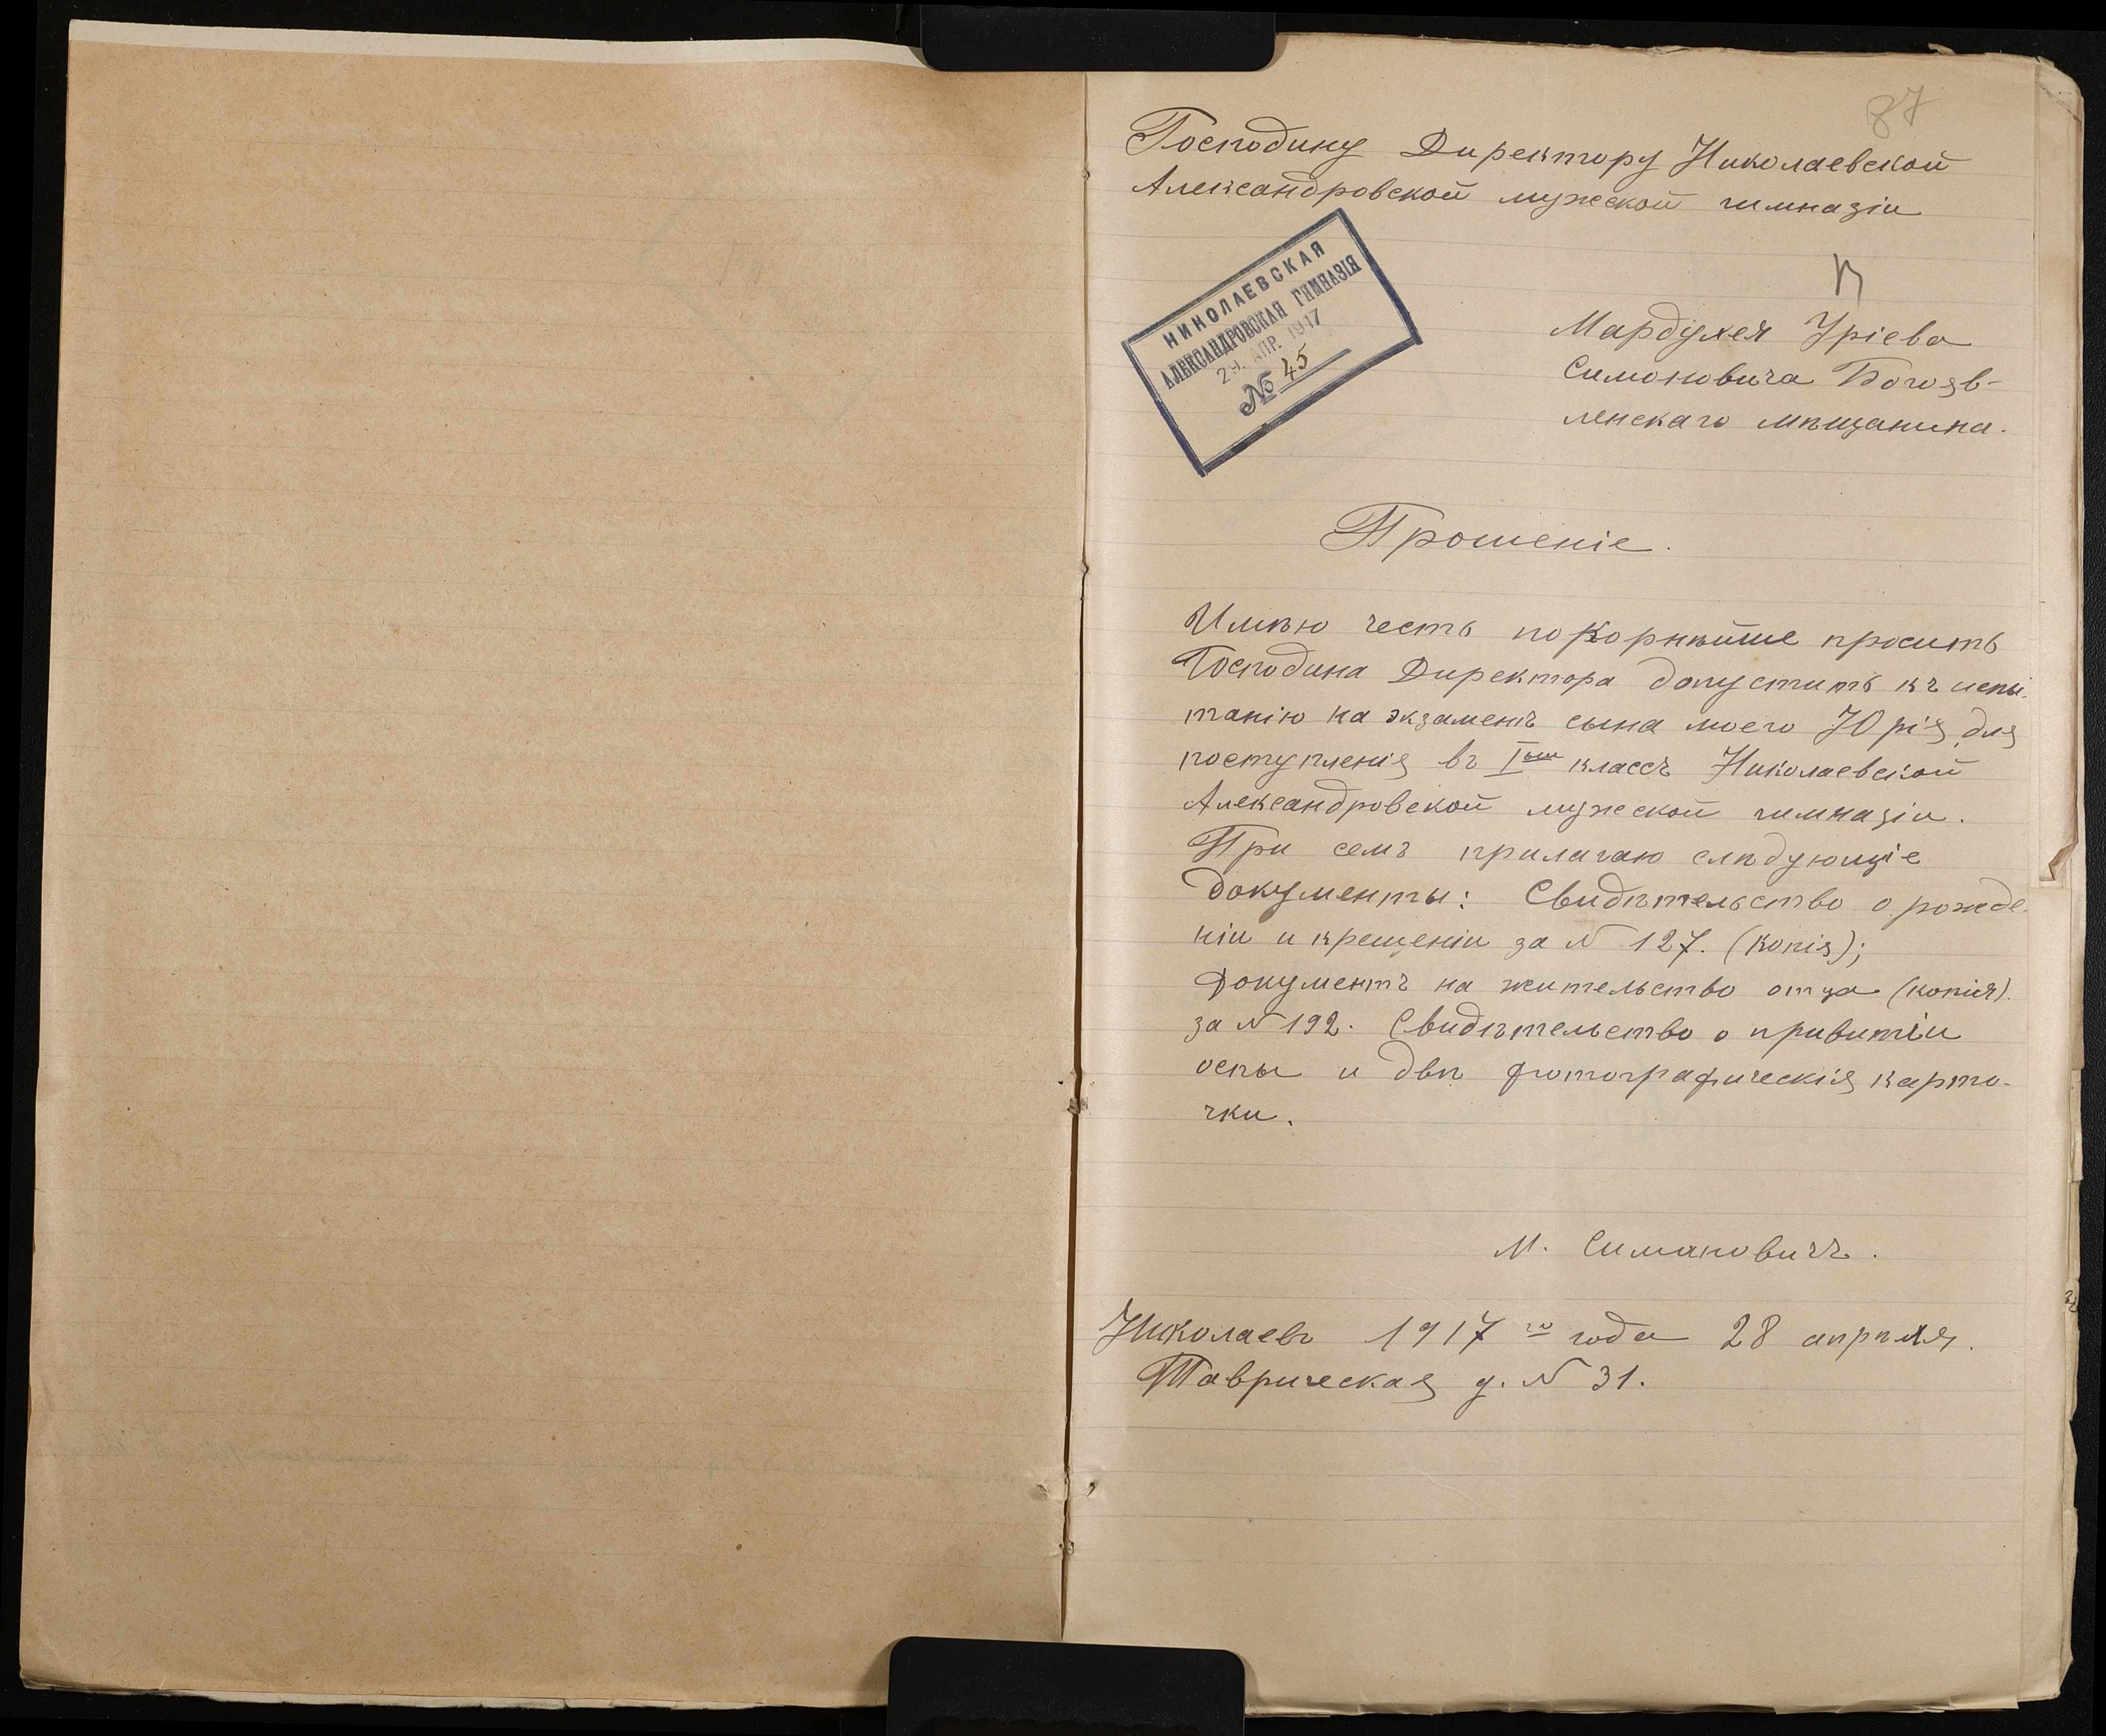 87
Господину Директору Николаевской
Александровской мужской гимназіи
НИКОЛАЕВСКАЯ
АЛЕКСАНДРОВСКАЯ ГИМНАЗІЯ
29. АПР. 1917
№ 45
Мардухея Уріева
Симоновича Богояв-
ленскаго мѣщанина.
Прошеніе.
Имѣю честь покорнѣйше просить
Господина Директора допустить къ испы-
танію на экзаменъ сына моего Юрія, для
поступленія въ Iый классъ Николаевской
Александровской мужской гимназіи.
При семъ прилагаю слѣдующіе
документы: Свидѣтельство о рожде-
ніи и крещеніи за N 127. (копія);
Документъ на жительство отца (копія).
за N 192. Свидѣтельство о привитіи
оспы и двѣ фотографическія карто-
чки.
М. Симановичъ.
Николаевъ 1917 го года 28 апрѣля.
Таврическая д. N 31.